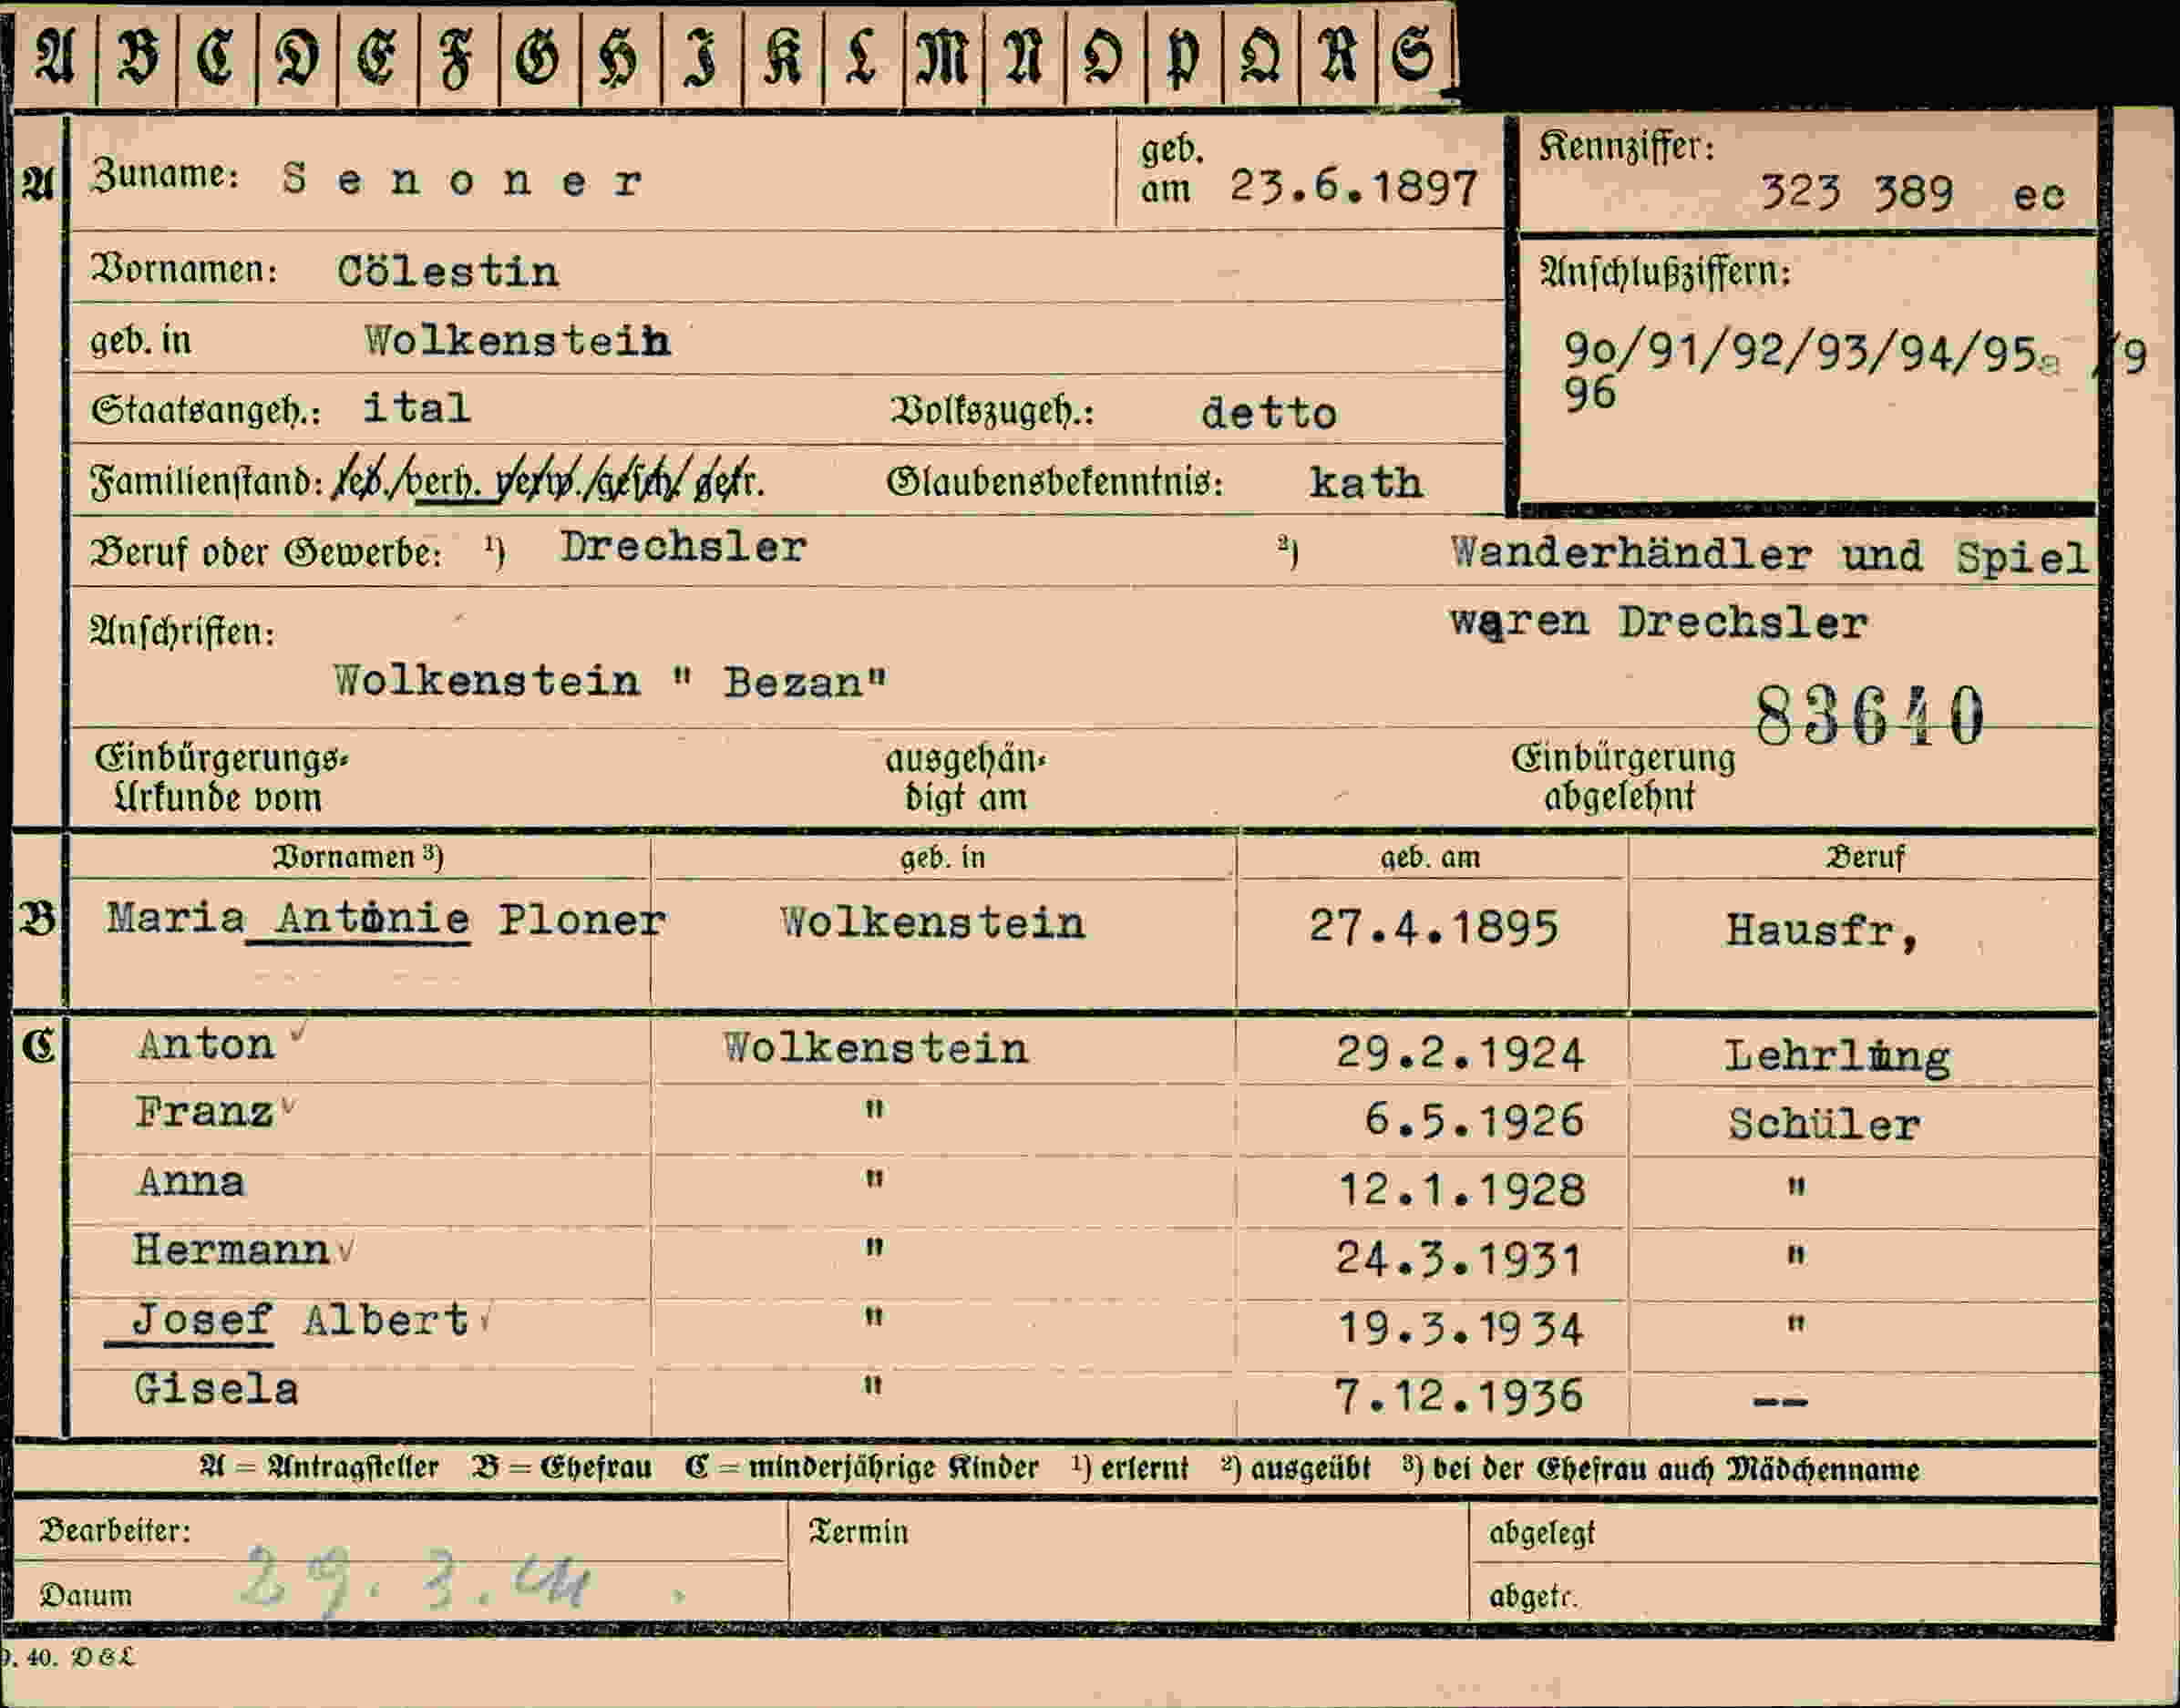 A B C D E F G H I K L M N O P Q R S
A Zuname: Senoner geb. am 23.6.1897 Kennziffer: 323 389 ec
Vornamen: Cölestin Anschlußziffern:
geb. in Wolkenstein 90/91/92/93/94/95 /9
96
Staatsangeh.: ital Volkszugeh.: detto
Familienstand: led./verh. verw./gesch/ getr. Glaubensbekenntnis: kath
Beruf oder Gewerbe: ¹) Drechsler ²) Wanderhändler und Spiel
waren Drechsler
Anschriften:
Wolkenstein " Bezan"
83640
Einbürgerungs- ausgehän- Einbürgerung
Urkunde vom digt am abgelehnt
Vornamen ³) geb. in geb. am Beruf
B Maria Antonie Ploner Wolkenstein 27.4.1895 Hausfr,
C Anton Wolkenstein 29.2.1924 Lehrling
Franz " 6.5.1926 Schüler
Anna " 12.1.1928 "
Hermann " 24.3.1931 "
Josef Albert " 19.3.1934 "
Gisela " 7.12.1936 --
A = Antragsteller B = Ehefrau C = minderjährige Kinder ¹) erlernt ²) ausgeübt ³) bei der Ehefrau auch Mädchenname
Bearbeiter: Termin abgelegt
Datum 29. 3. abgetr.
. 40. DGL